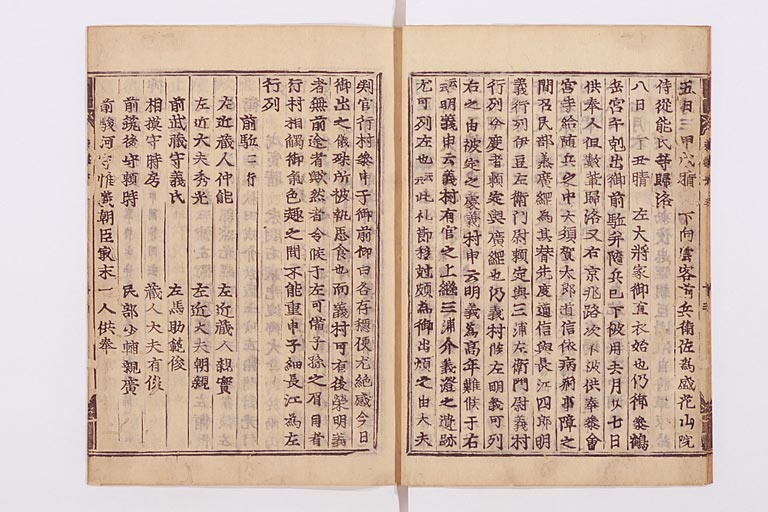 五日三甲戌晴 下向雲客前兵衛佐為盛花山院
侍從能氏等歸洛
八日 丁丑晴 左大將家御直衣始也仍御參鶴
岳宮午剋出御前駈并隨兵已下被用去月廿七日
供奉人但數輩歸洛又右京兆路次不被供奉參會
宮寺給隨兵之中大須賀太郎道信依病痾事障之
間召民部義廣經為其替先度道信與長江四郎明
義行列伊豆左衛門尉賴定與三浦左衛門尉義村
行列今度者賴定與廣經也仍義村候左明義可列
右之由被定之處義村申云明義為高年難候于右
明義申云義村有官之上繼三浦介義澄之遺跡
尤可列左也 此礼節移尅頗為御出煩之由大夫
判官行村參申子御前仰曰各存穩便尤絶感今日
御出之儀殊所被執思食也而義村可有後榮明義
者無前途者歟然者令候于左可備子孫之眉目者
行村相觸御氣色趣之間不能重申子細長江為左
行列
前駈二行
左近蔵人仲能 左近蔵人親實
左近大夫秀光 左近大夫朝親
前武蔵守義氏 左馬助範俊
相摸守時房 蔵人大夫有俊
前筑後守頼時 民部少輔親廣
前駿河守惟義朝臣最末一人供奉